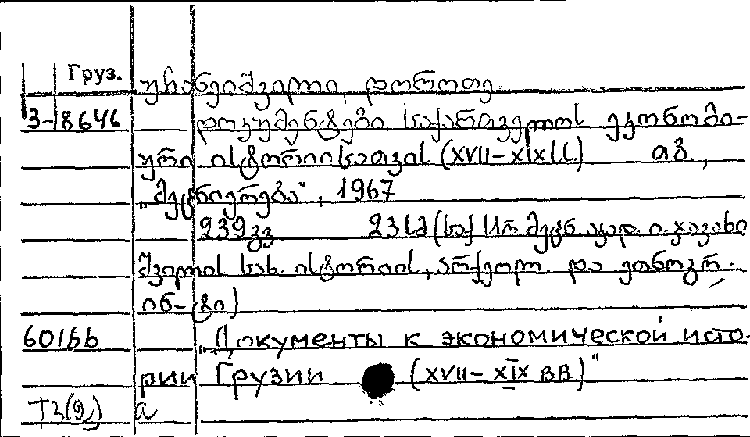 Груз. ურანეიშვილი, დოროთე.
3-18646 დოკუმენტები საქართველოს ეკონომი-
ური ისტორიისათვის (XVII-XIX სს.) თბ.,
„მეცნიერება", 1967
239 გვ. (საქ. სსრ მეცნ. აკად. ი. ჯავახი
შვილის სახ. ისტორიის, არქეოლ. და ეთნოგრ.
ინ-ტი)
6015ბ „Документы к экономической исто-
рии Грузии (XVII-XIX вв)"